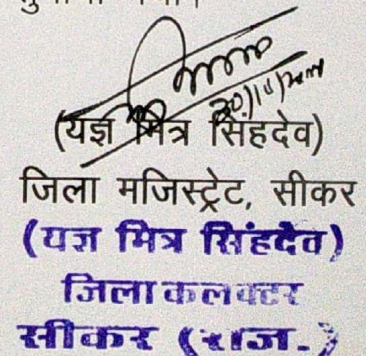 (यज्ञ मित्र सिंहदेव)
जिला मजिस्ट्रेट, सीकर
(यज्ञ मित्र सिंहदेव)
जिला कलक्टर
सीकर (राज.)